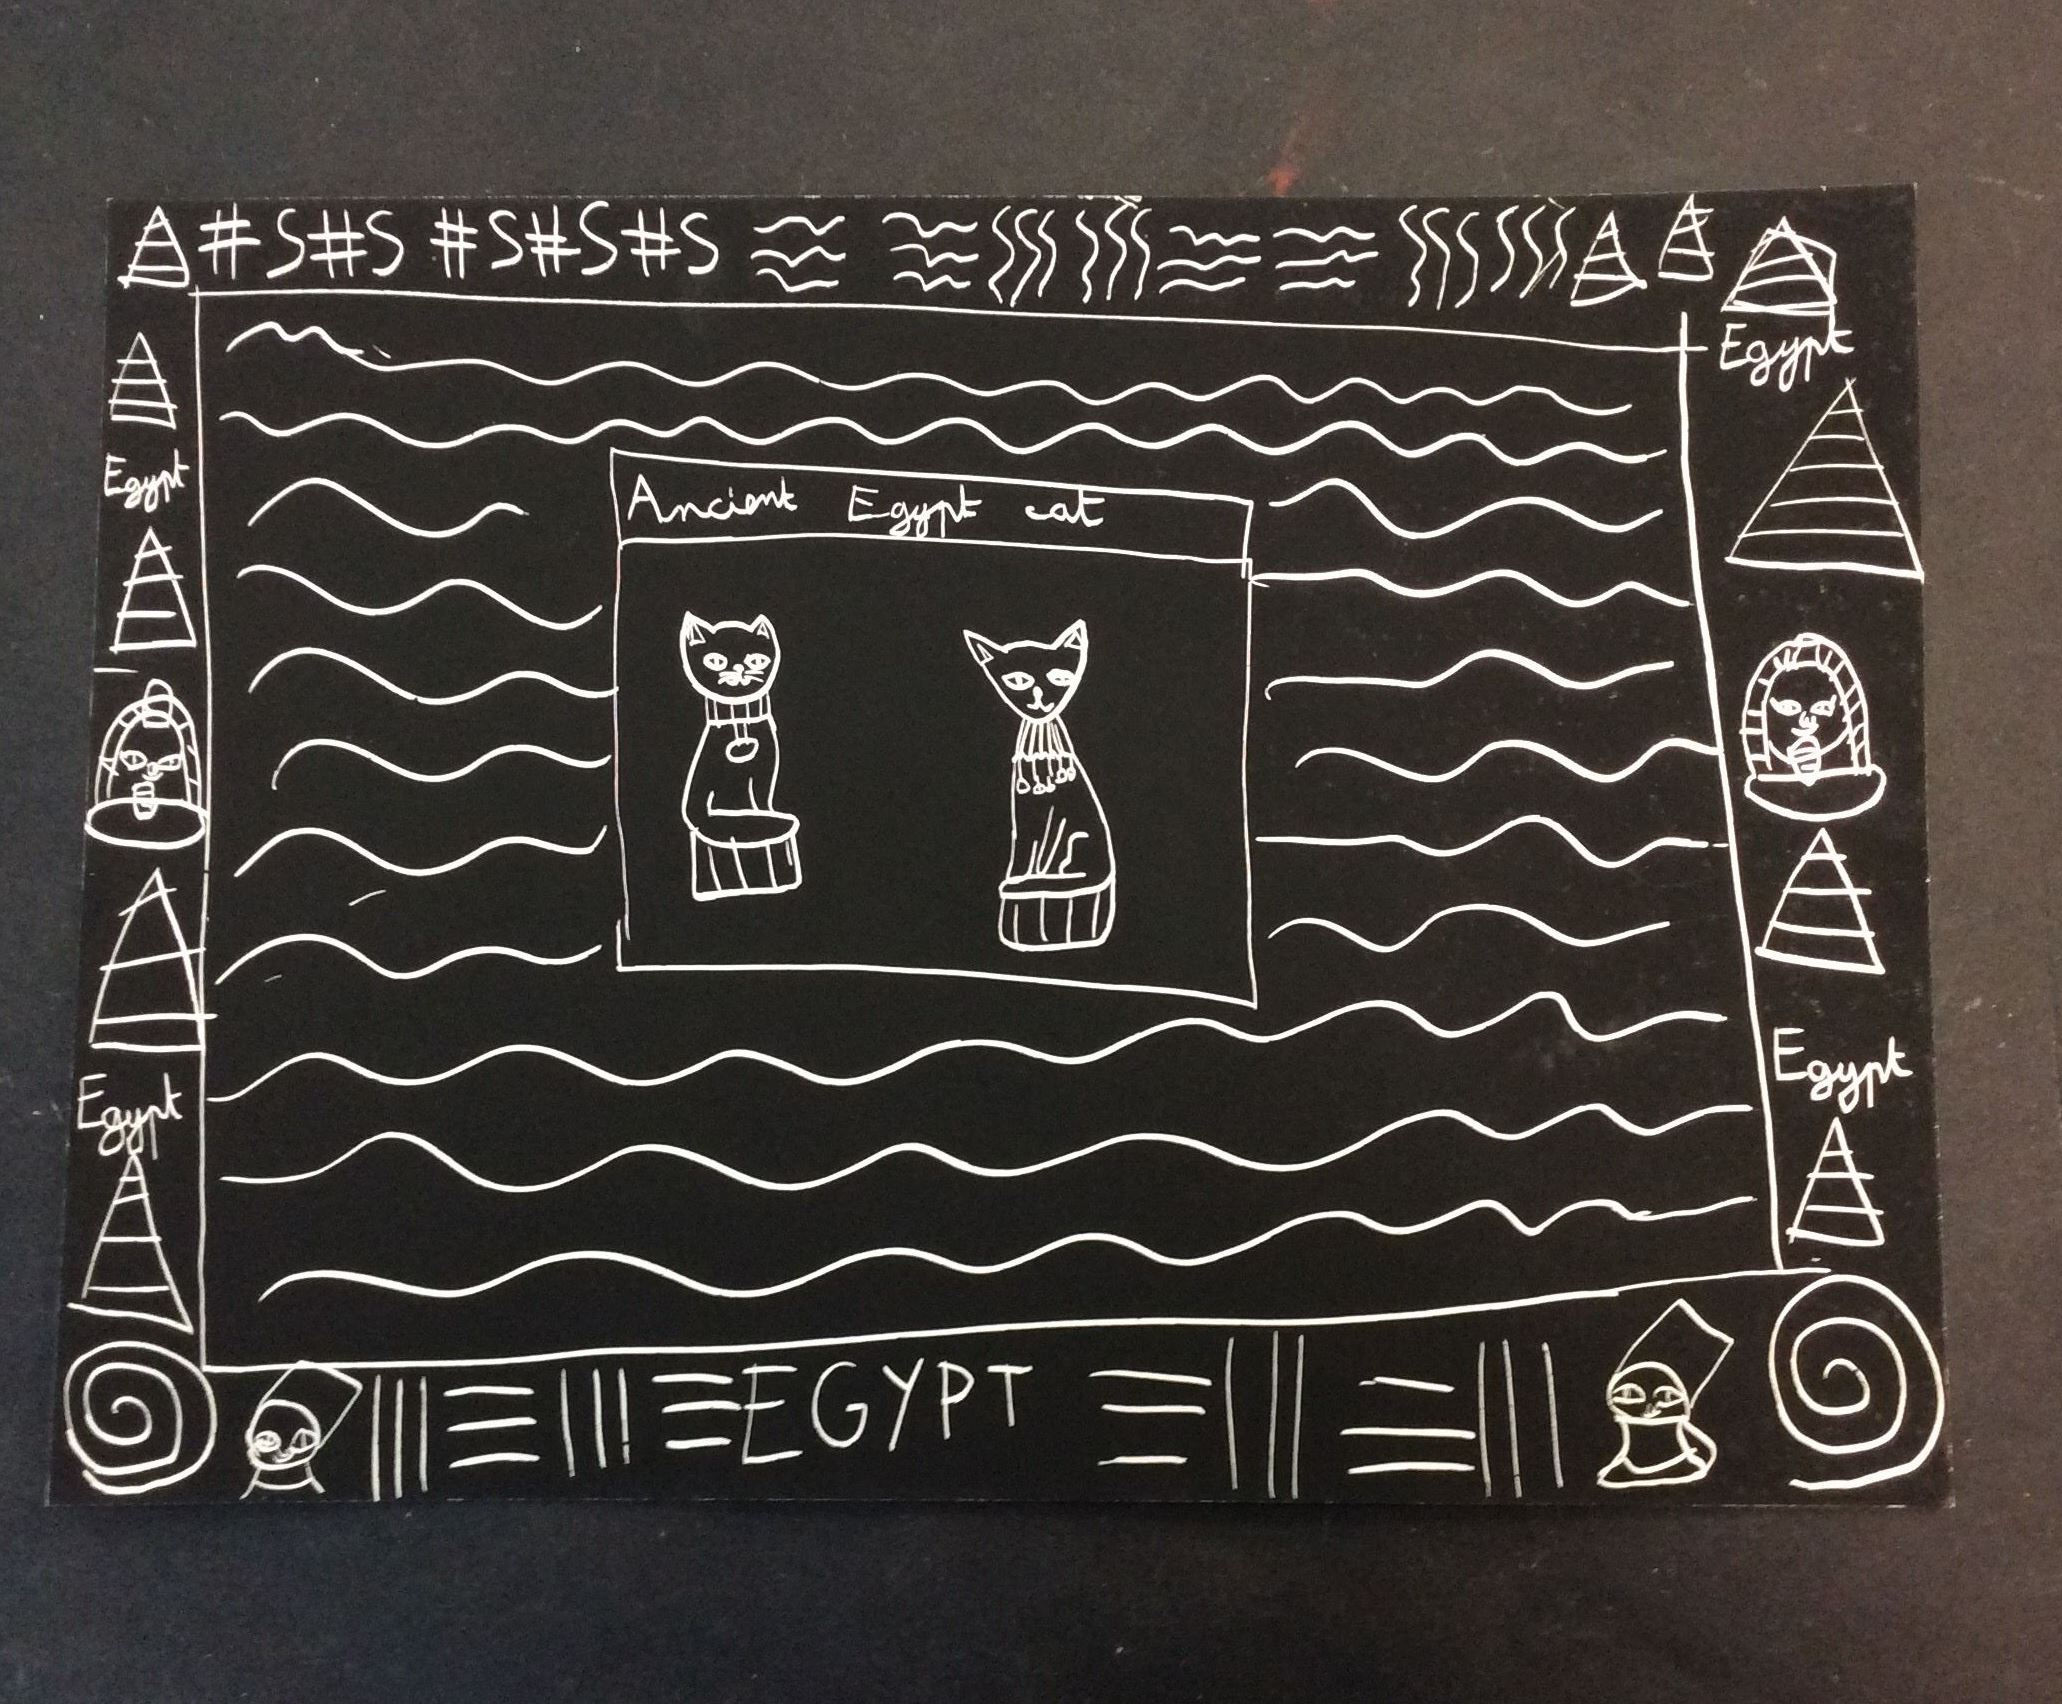 #S#S #S#S#S
Egypt
Egypt
Ancient Egypt cat
Egypt
Egypt
EGYPT